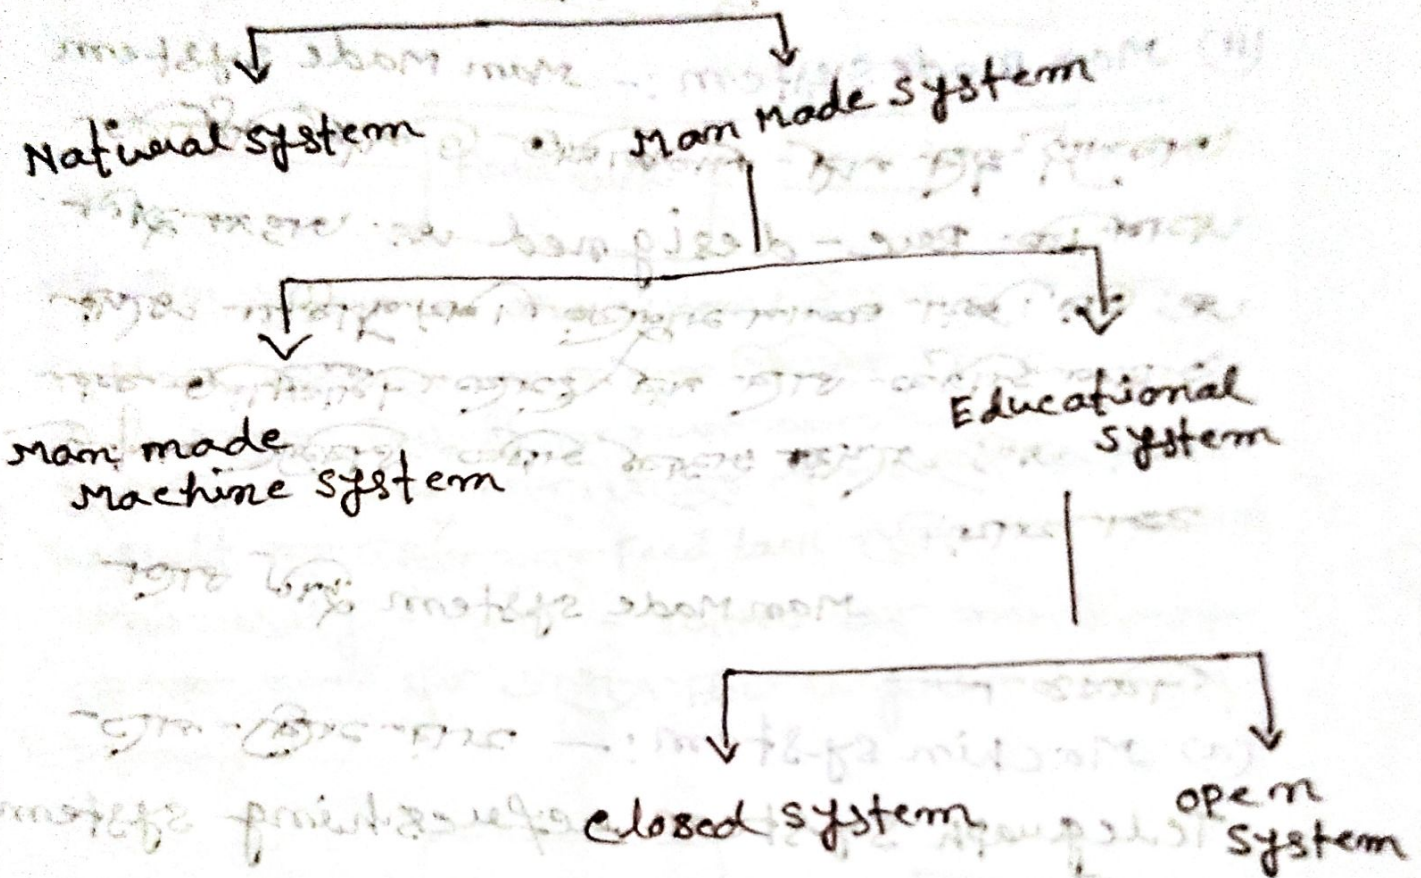 Natural system
Man Made system
Man made
Machine system
Educational
system
closed system
open
system